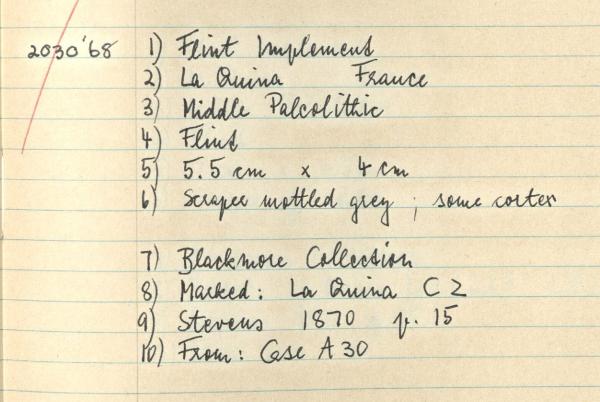 2030'68 1) Flint Implement
2) La Quina France
3) Middle Paleolithic
4) Flint
5) 5.5 cm x 4 cm
6) Scraper mottled grey ; some cortex
7) Blackmore Collection
8) Marked: La Quina C2
9) Stevens 1870 p. 15
10) From: Case A30